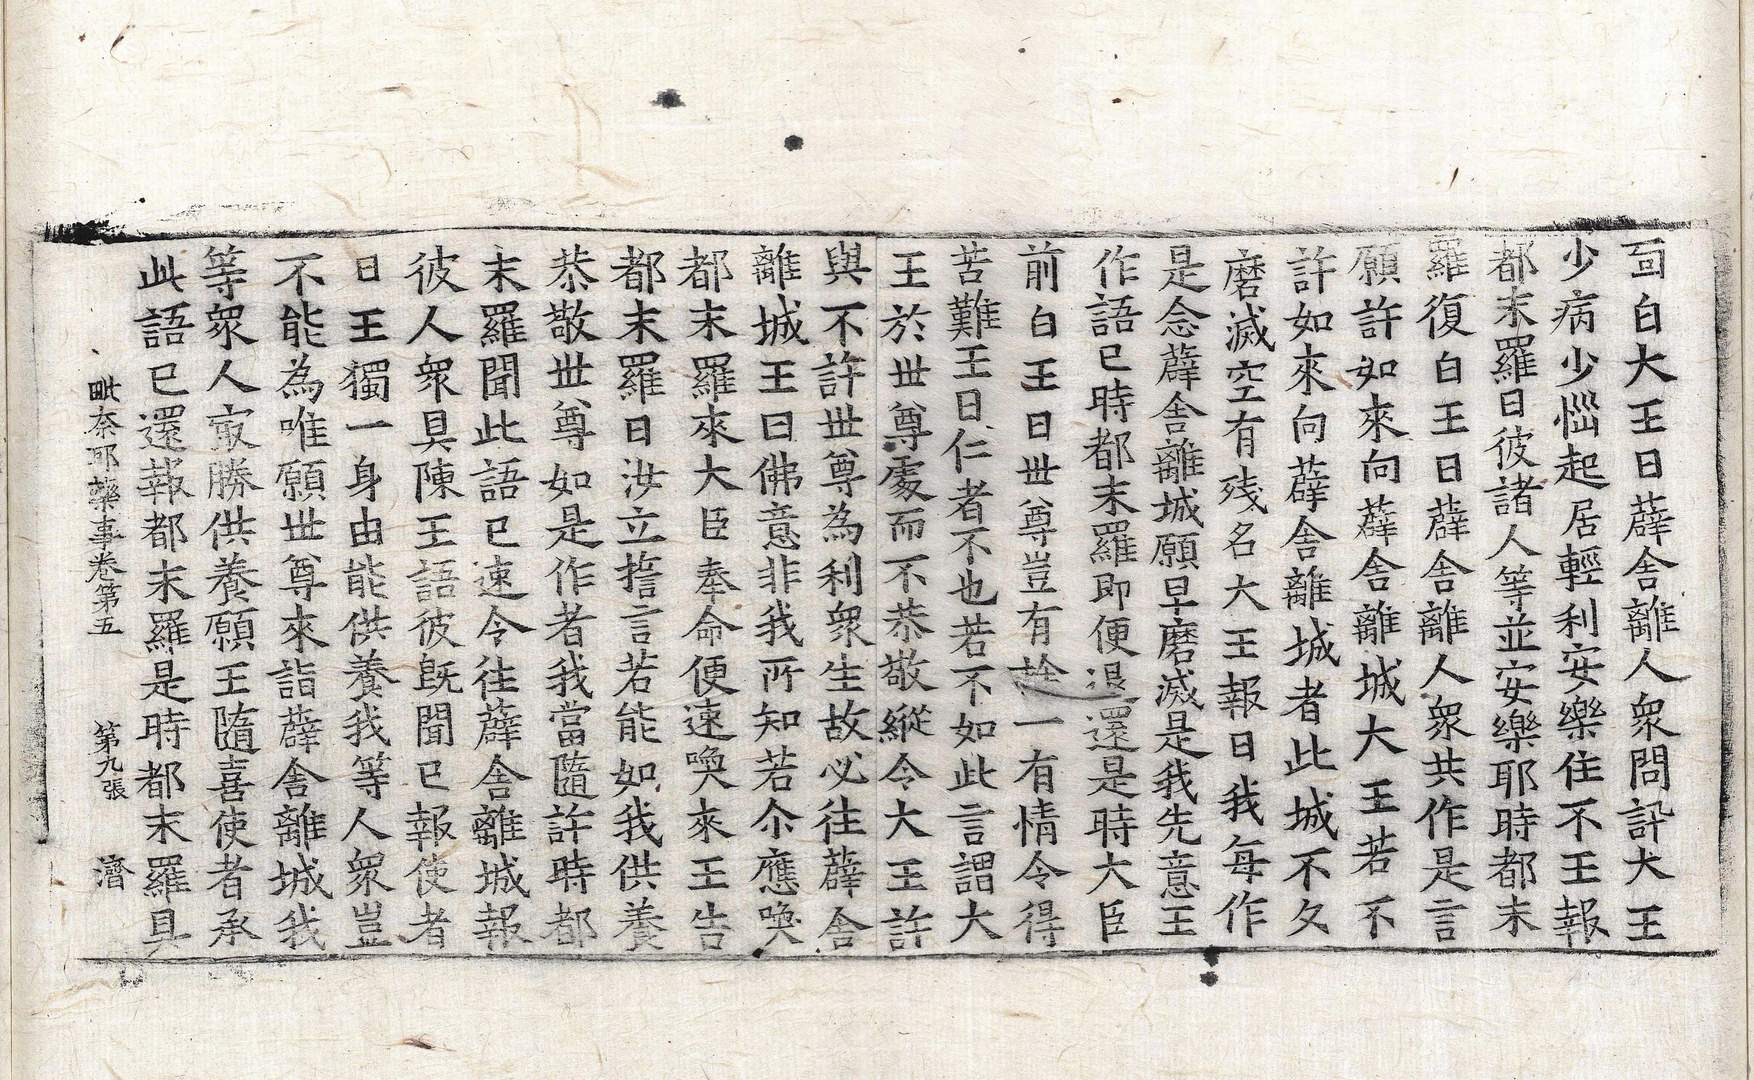 面白大王曰薜舍離人衆問訊大王
少病少惱起居輕利安樂住不王報
都末羅曰彼諸人等並安樂耶時都末
羅復白王曰薜舍離人衆共作是言
願許如來向薜舍離城大王若不
許如來向薜舍離城者此城不久
磨滅空有残名大王報曰我每作
是念薜舍離城願早磨滅是我先意王
作語已時都末羅即便退還是時大臣
前白王曰世尊豈有於一有情令得
苦難王曰仁者不也若不如此言謂大
王於世尊處而不恭敬縱令大王許
與不許世尊為利衆生故必往薜舍
離城王曰佛意非我所知若尒應喚
都末羅來大臣奉命便速喚來王告
都末羅曰汝立誓言若能如我供養
恭敬世尊如是作者我當隨許時都
末羅聞此語已速令往薜舍離城報
彼人衆具陳王語彼既聞已報使者
曰王獨一身由能供養我等人衆豈
不能為唯願世尊來詣薜舍離城我
等衆人㝡勝供養願王隨喜使者承
此語已還報都末羅是時都末羅具
毗奈耶藥事卷第五 第九張 濟